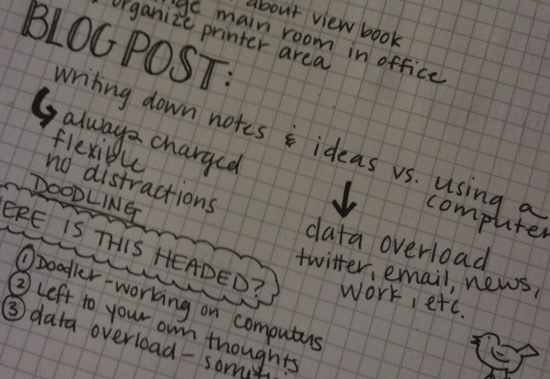 about view book
main room in office
organize printer area
BLOG POST:
writing down notes & ideas vs. using a
computer
always charged
flexible
no distractions
DOODLING
data overload
twitter, email, news,
work, etc.
IS THIS HEADED?
① Doodler - working on computers
② Left to your own thoughts
③ data overload -